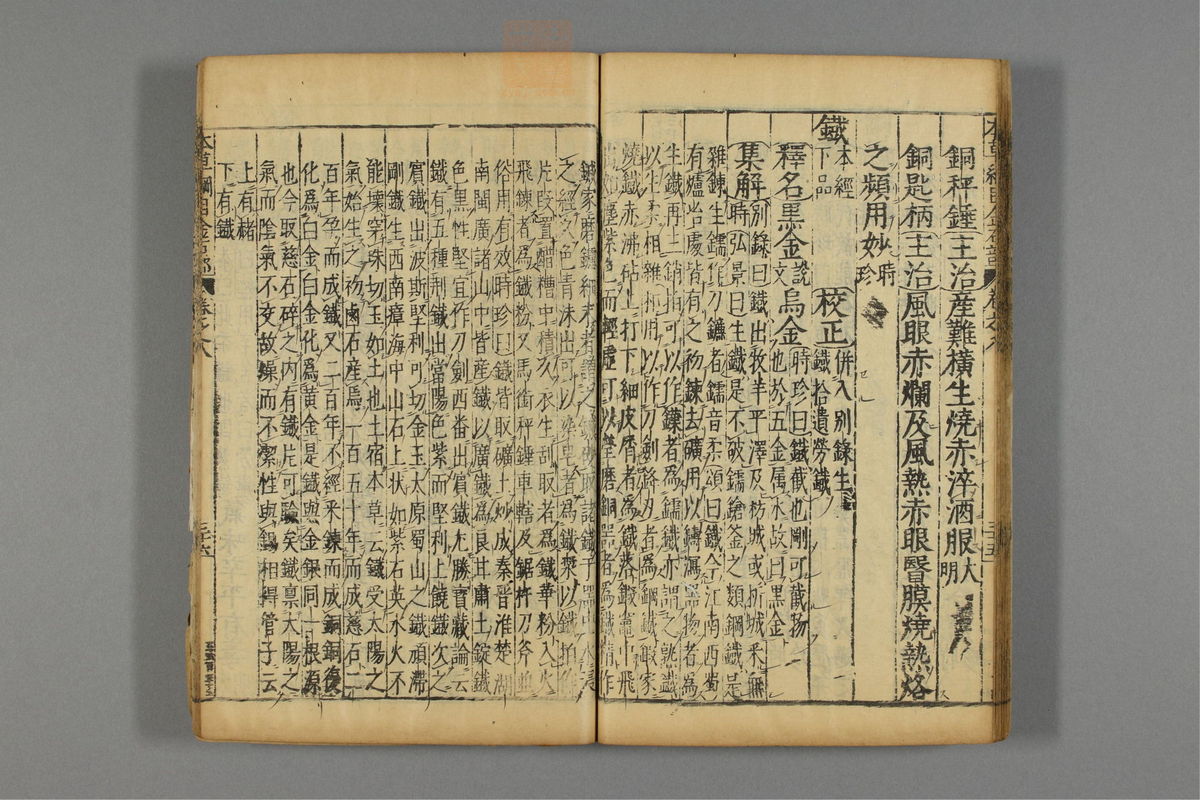 銅秤錘主治產難橫生燒赤淬酒服大明
銅匙柄主治風眼赤爛及風熱赤眼瞖膜燒熱烙
之頻用妙時珍
鐵本經下品 校正併入別錄生鐵拾遺勞鐵
釋名黑金說文烏金時珍曰鐵截也剛可截物也於五金屬水故曰黑金
集解別錄曰鐵出牧羊平澤及枋城或析城采無
時弘景曰生鐵是不破鐺鎗釜之類鋼鐵是
雜鍊生鍒作刀鐮者鍒音柔頌曰鐵今江南西蜀
有爐冶處皆有之初鍊去礦用以鑄瀉器物者為
生鐵再三銷拍可以作鍱者為鍒鐵亦謂之熟鐵
以生柔相雜和用以作刀劍鋒刃者為鋼鐵鍜家
燒鐵赤沸砧上打下細皮屑者為鐵落鍜竈中飛
出如塵紫色而輕虛可以瑩磨銅器者為鐵精作
鍼家磨鑢細末者謂之鍼砂取諸鐵于器中水浸
之經久色青沫出可以染皂者為鐵漿以鐵拍作
片段置醋糟中積久衣生刮取者為鐵華粉入火
飛鍊者為鐵粉又馬銜秤錘車轄及鋸杵刀斧並
俗用有效時珍曰鐵皆取礦土炒成秦晉淮楚湖
南閩廣諸山中皆產鐵以廣鐵為良甘肅土錠鐵
色黑性堅宜作刀劍西番出賓鐵尤勝寶藏論云
鐵有五種荆鐵出當陽色紫而堅利上饒鐵次之
賓鐵出波斯堅利可切金玉太原蜀山之鐵頑滯
剛鐵生西南瘴海中山石上狀如紫石英水火不
能壞穿珠切玉如土也土宿本草云鐵受太陽之
氣始生之初鹵石產焉一百五十年而成慈石二
百年孕而成鐵又二百年不經采鍊而成銅銅復
化為白金白金化為黃金是鐵與金銀同一根源
也今取慈石碎之內有鐵片可驗矣鐵稟太陽之
氣而陰氣不交故燥而不潔性與錫相得管子云
上有赭
下有鐵